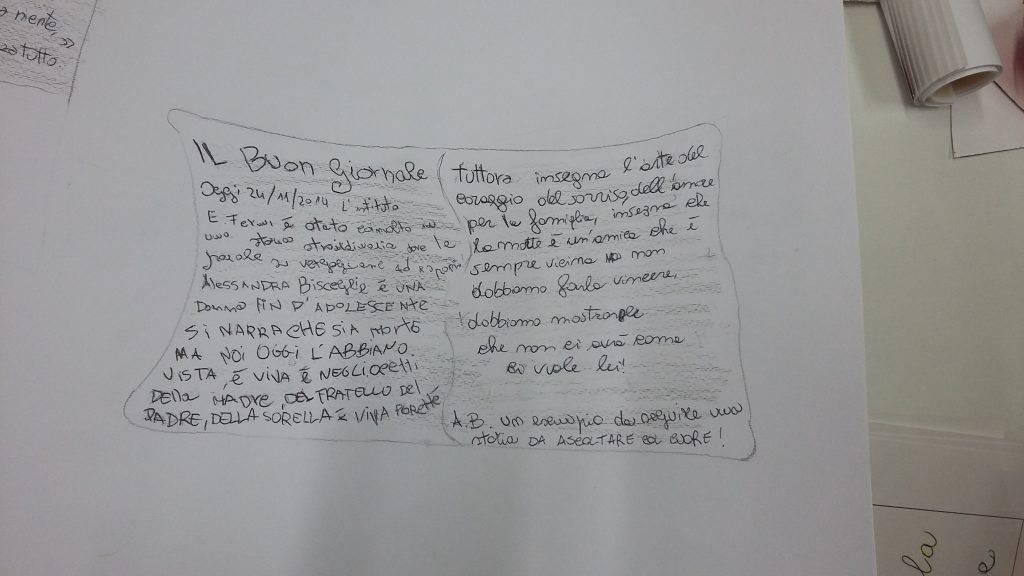 a mente,
tutto
IL Buon Giornale
Oggi 24/11/2014 L'istituto
E. Fermi è stato coinvolto in
una storia straordinaria
parole
ALESSANDRA Bisceglie È UNA
DONNA FIN D'ADOLESCENTE
SI NARRA CHE SIA MORTE
MA NOI OGGI L'ABBIAMO
VISTA, È VIVA È NEGLI OCCHI
DELLA MADRE DEL FRATELLO DEL
PADRE, DELLA SORELLA È VIVA PERCHÉ
tuttora insegna l'arte del
coraggio del sorriso, dell'amore
per la famiglia, insegna che
la morte è un'amica che è
sempre vicina non
dobbiamo farla vincere,
dobbiamo mostrarle
che non ci avrà come
ci vuole lei!
A.B. un esempio da seguire una
storia DA ASCOLTARE COL CUORE!
la
e